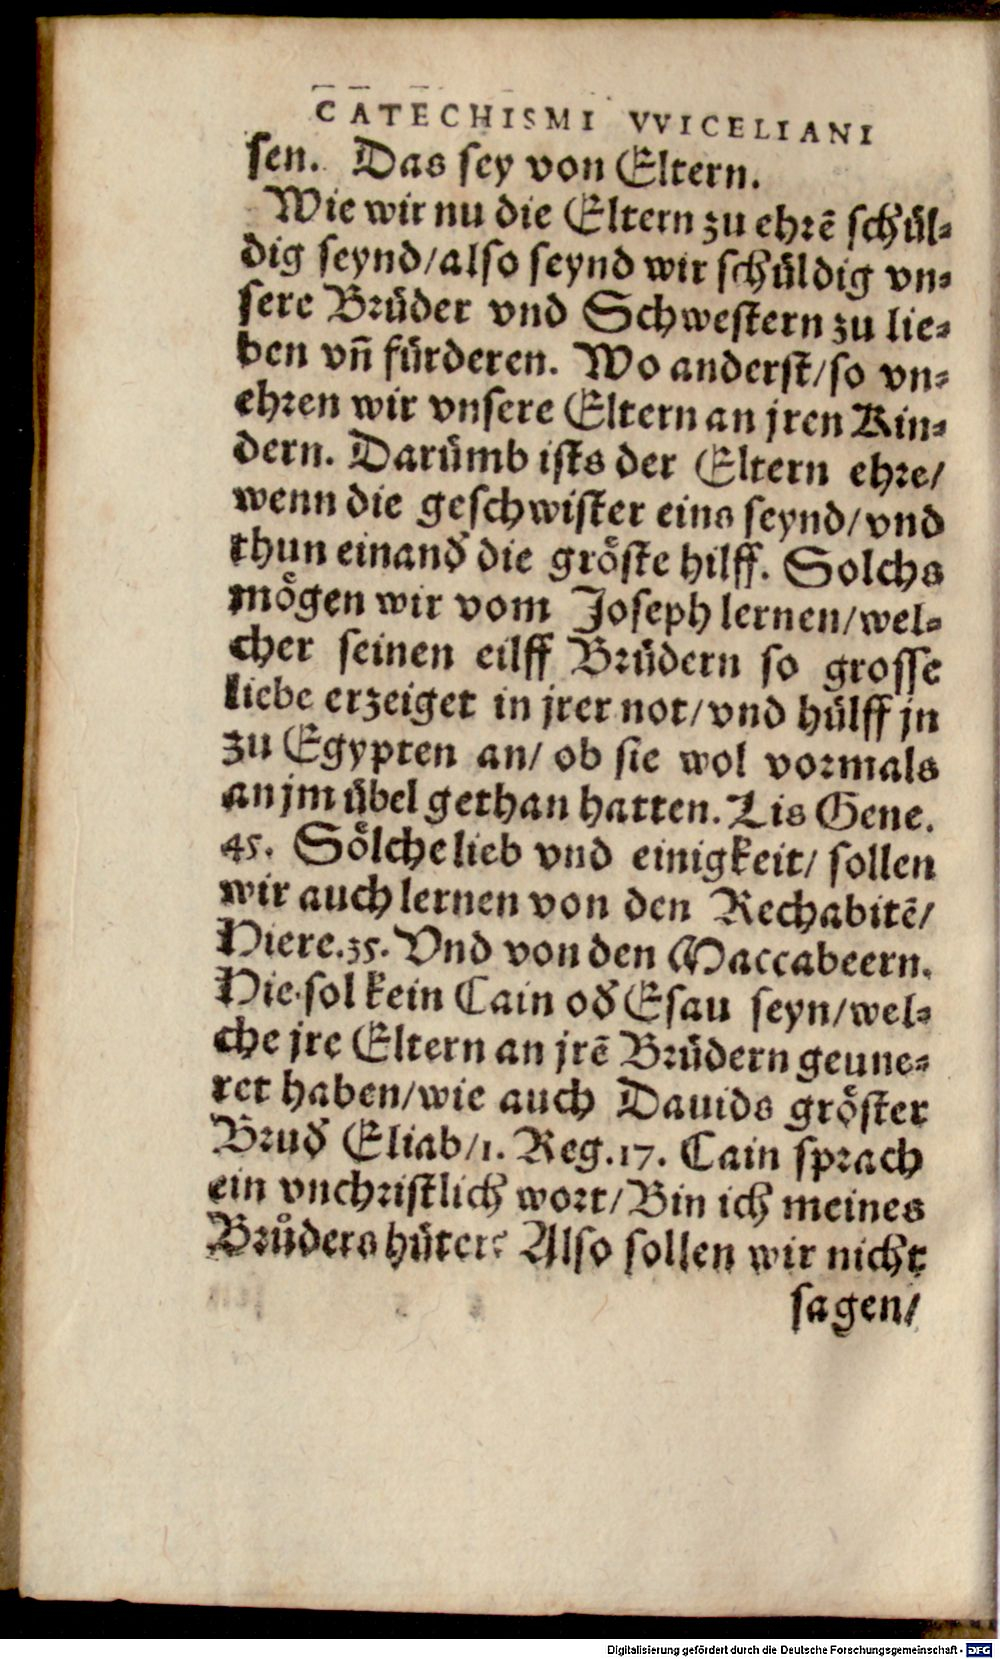 CATECHISMI VVICELIANI
sen. Das sey von Eltern.
Wie wir nu die Eltern zu ehrẽ schül⸗
dig seynd/also seynd wir schüldig vn⸗
sere Brüder vnd Schwestern zu lie⸗
ben vñ fürderen. Wo anderst/so vn⸗
ehren wir vnsere Eltern an jren Kin⸗
dern. Darümb ists der Eltern ehre/
wenn die geschwister eins seynd/vnd
thun einand̛ die gröste hilff. Solchs
mögen wir vom Joseph lernen/wel⸗
cher seinen eilff Brüdern so grosse
liebe erzeiget in jrer not/vnd hülff jn
zu Egypten an/ ob sie wol vormals
an jm übel gethan hatten. Lis Gene.
45. Sölche lieb vnd einigkeit/ sollen
wir auch lernen von den Rechabitẽ/
Hiere.35. Vnd von den Maccabeern.
Hie sol kein Cain od̛ Esau seyn/wel⸗
che jre Eltern an jrẽ Brüdern geune⸗
ret haben/wie auch Dauids gröster
Brud̛ Eliab/1. Reg.17. Cain sprach
ein vnchristlich wort/Bin ich meines
Brůders hüter? Also sollen wir nicht
sagen/
Digitalisierung gefördert durch die Deutsche Forschungsgemeinschaft - DFG